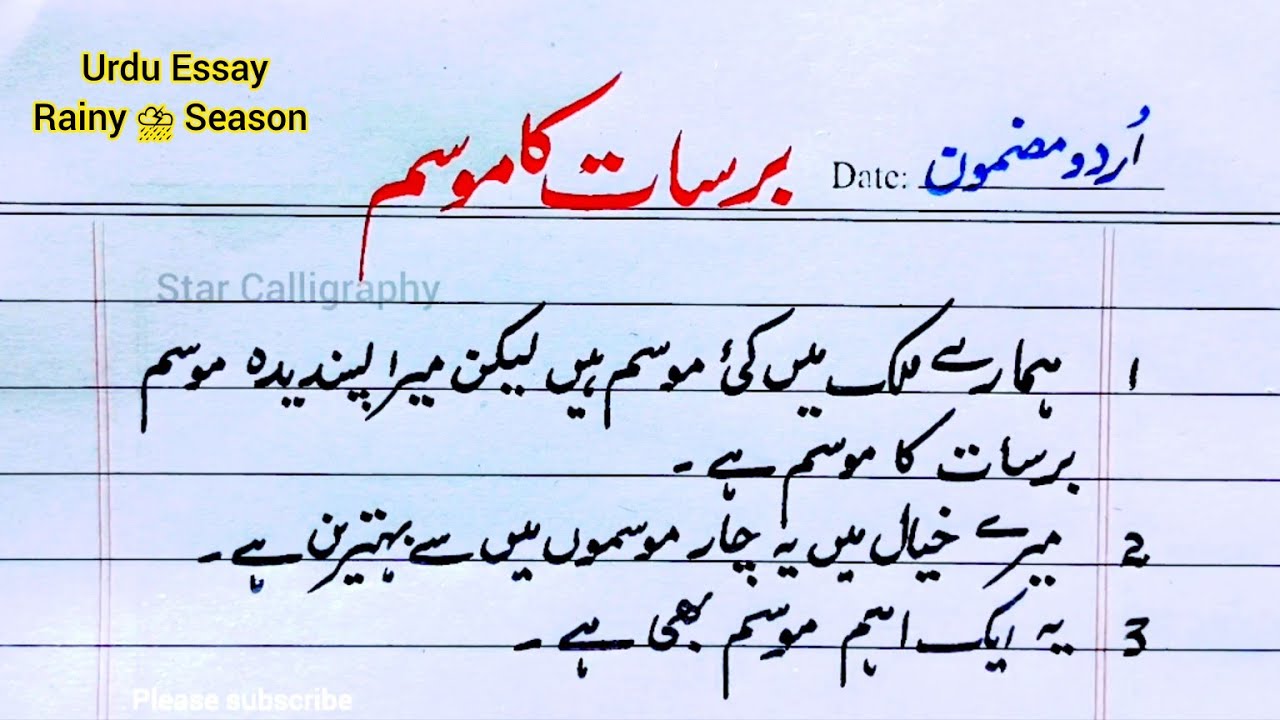 Urdu Essay
Rainy ⛈ Season
اُردو مضمون
Date:
برسات کا موسم
Star Calligraphy
1 ہمارے ملک میں کئ موسم ہیں لیکن میرا پسندیدہ موسم
برسات کا موسم ہے ۔
2 میرے خیال میں یہ چار موسموں میں سے بہترین ہے ۔
3 یہ ایک اہم موسم بھی ہے ۔
Please subscribe